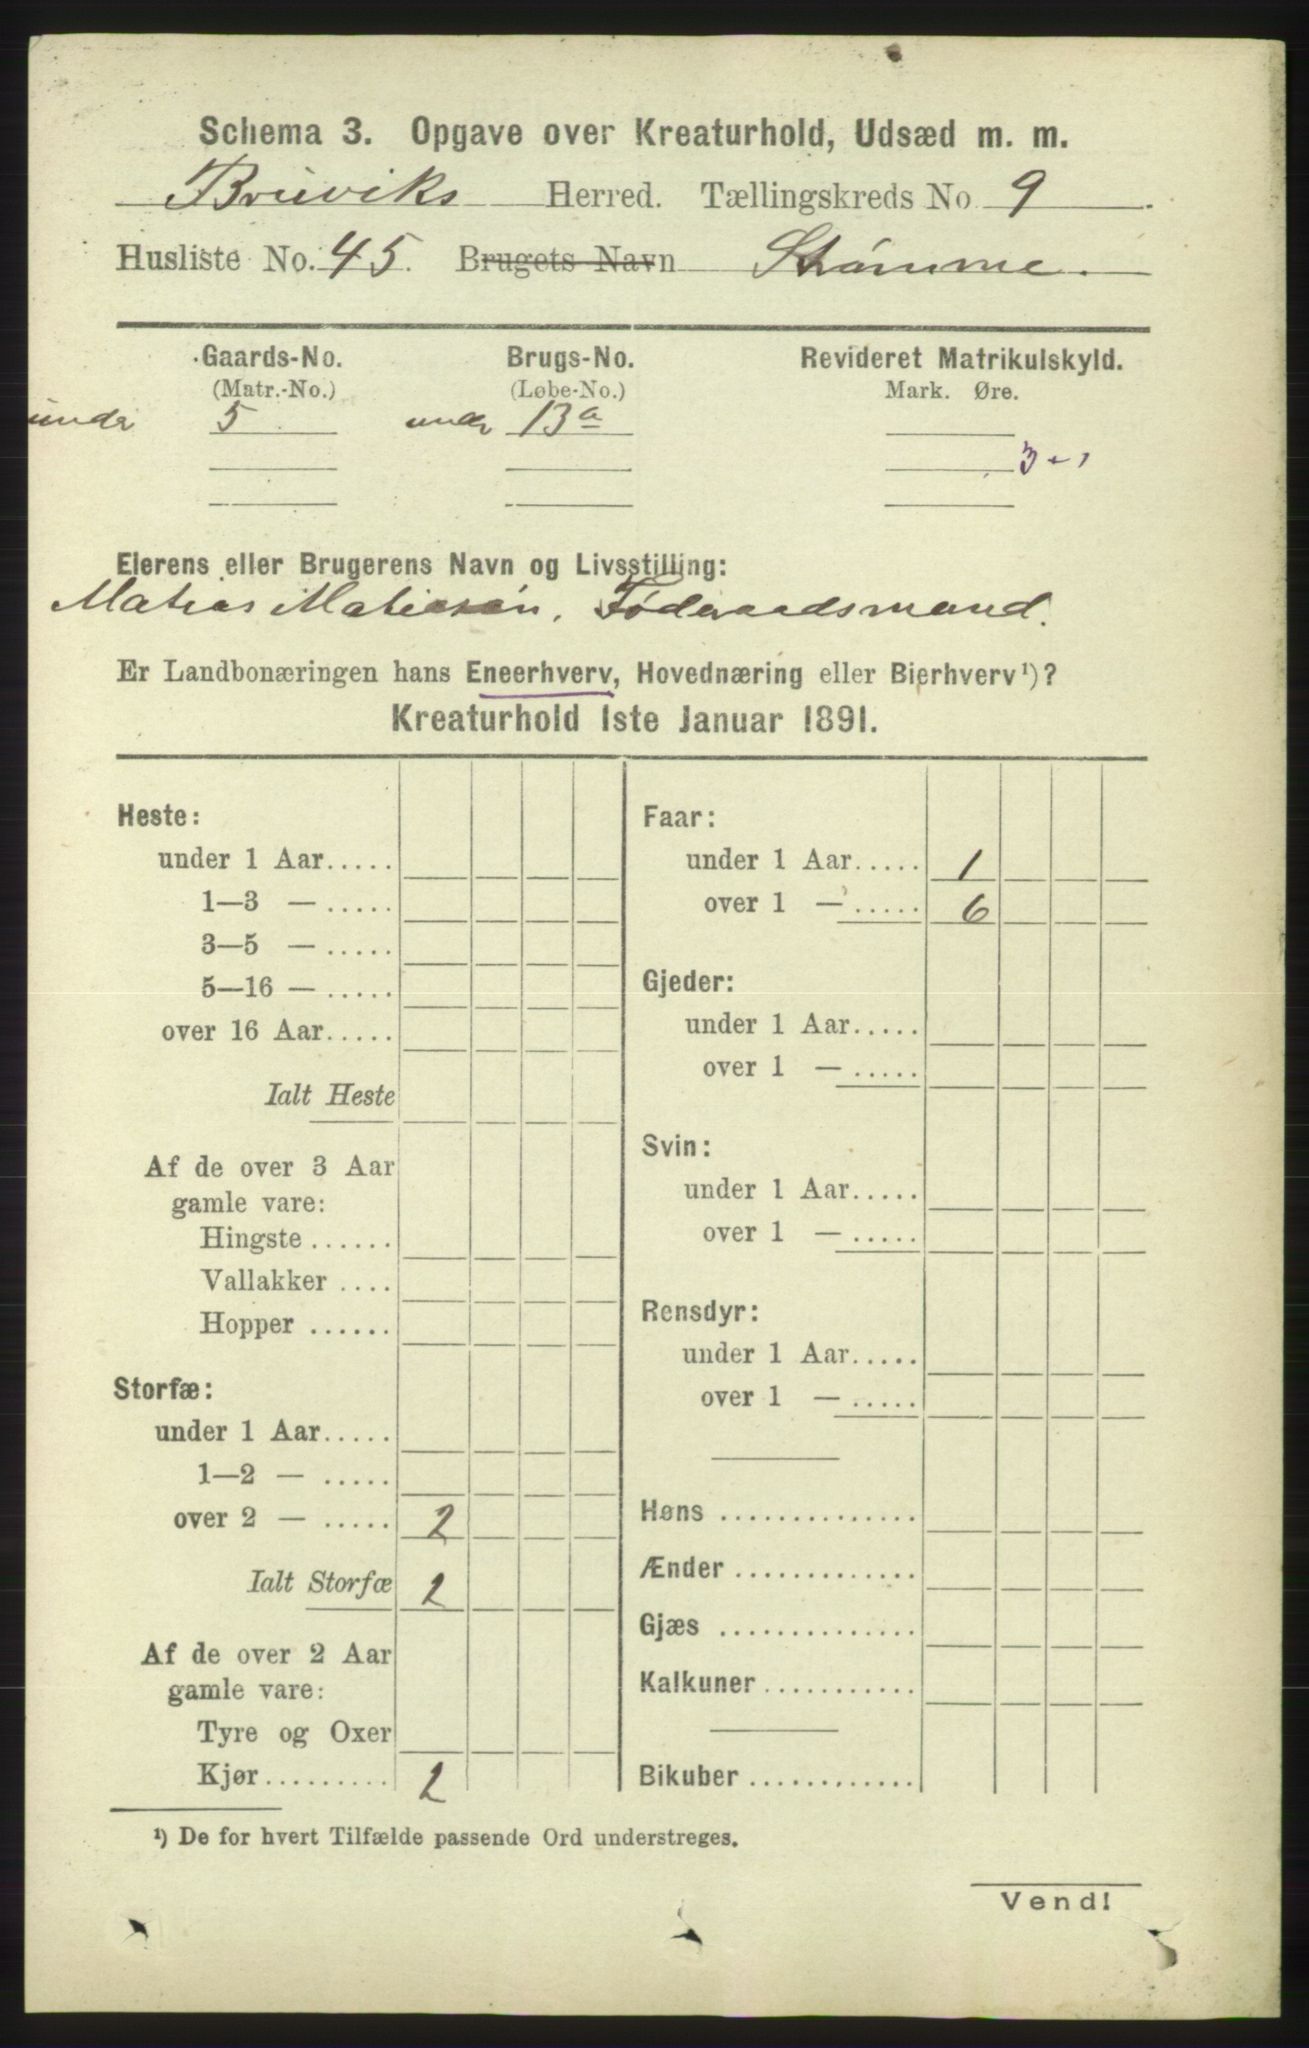 Schema 3. Opgave over Kreaturhold, Udsæd m. m.
Bruviks Herred. Tællingskreds No 9.
Husliste No. 45. Brugets Navn Stamme.
Gaards-No. Brugs-No. Revideret Matrikulskyld.
(Matr.-No.) (Løbe-No.) Mark. Øre.
under 5 under 13a
3
Eierens eller Brugerens Navn og Livsstilling:
Matias Matiesen, Føderaadsmand.
Er Landbonæringen hans Eneerhverv, Hovednæring eller Bierhverv¹)?
Kreaturhold 1ste Januar 1891.
Heste:
under 1 Aar.....
1—3 — .....
3—5 — .....
5—16 — .....
over 16 Aar.....
Ialt Heste
Af de over 3 Aar
gamle vare:
Hingste ......
Vallakker ....
Hopper ......
Storfæ:
under 1 Aar.....
1—2 — .....
over 2 — ..... 2
Ialt Storfæ 2
Af de over 2 Aar
gamle vare:
Tyre og Oxer
Kjør......... 2
Faar:
under 1 Aar..... 1
over 1 — ..... 6
Gjeder:
under 1 Aar.....
over 1 — .....
Svin:
under 1 Aar.....
over 1 — .....
Rensdyr:
under 1 Aar.....
over 1 — .....
Høns ..............
Ænder .............
Gjæs ..............
Kalkuner...........
Bikuber ............
¹) De for hvert Tilfælde passende Ord understreges.
Vend!